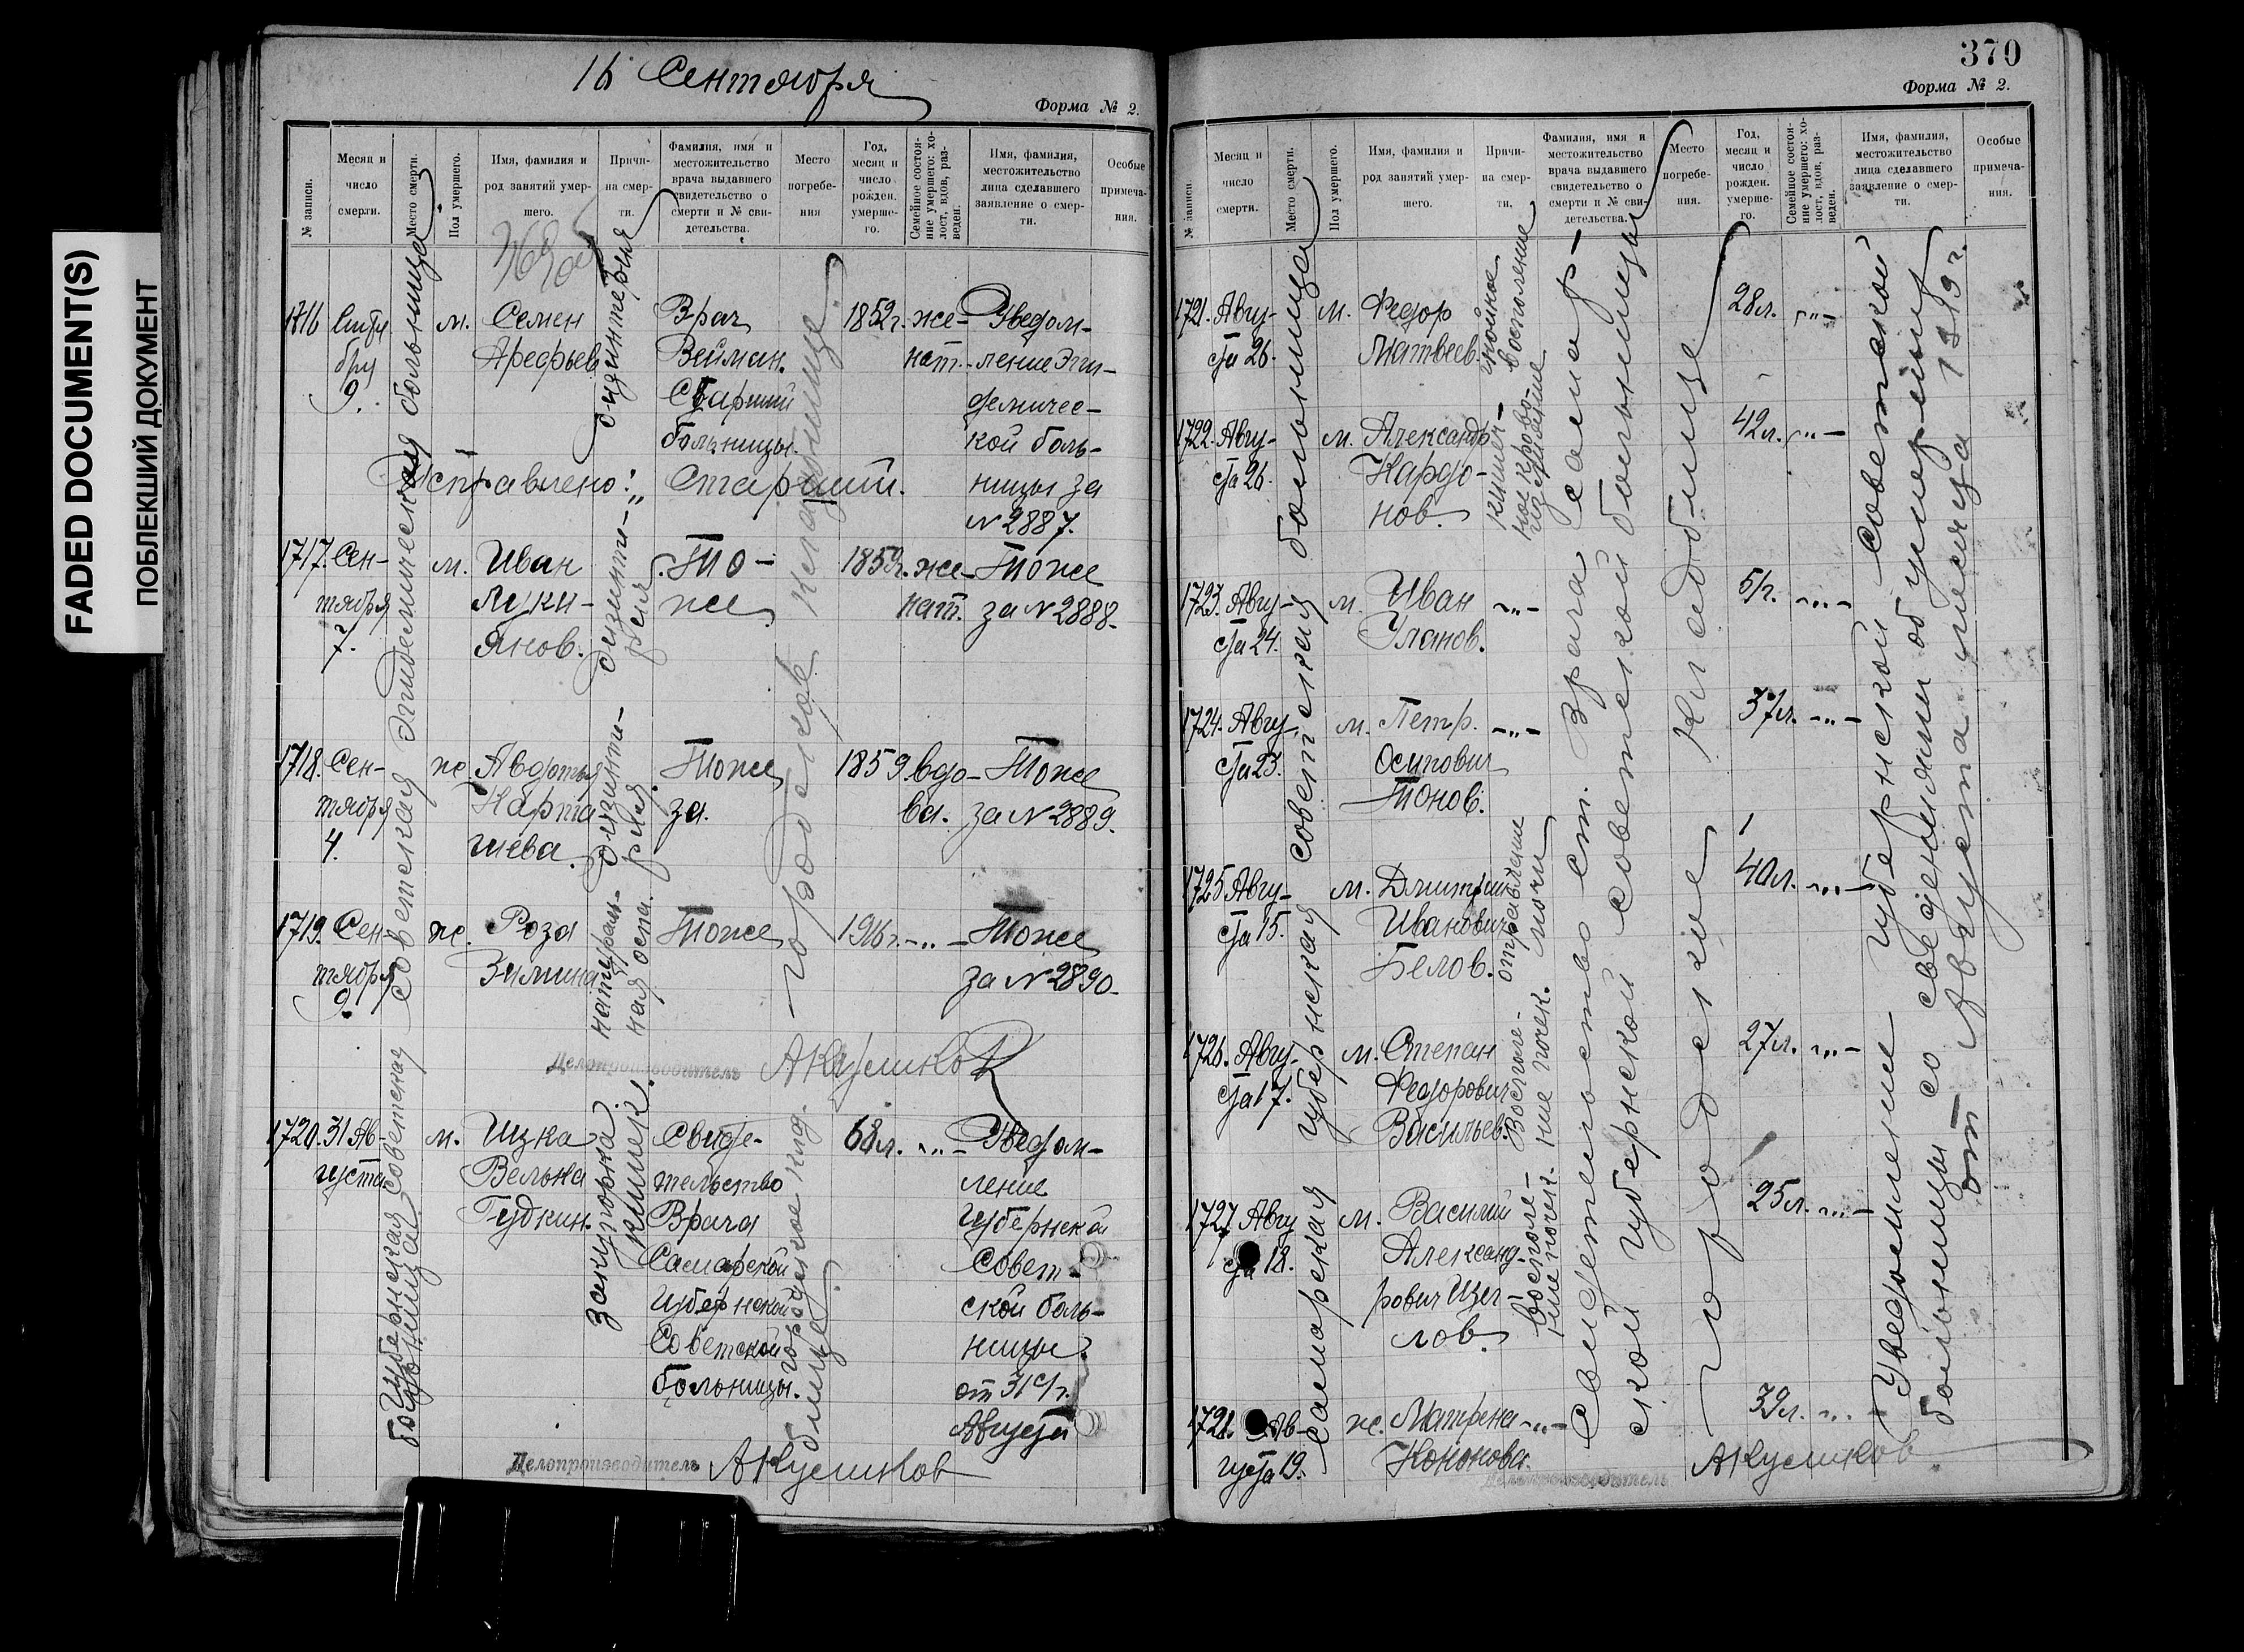 FADED DOCUMENT(S)
ПОБЛЕКШИЙ ДОКУМЕНТ
16 Сентября
Форма № 2.
№ записи.
Месяц и число смерти.
Место смерти.
Пол умершего.
Имя, фамилия и род занятий умершего.
Причина смерти.
Фамилия, имя и местожительство врача выдавшего свидетельство о смерти и № свидетельства.
Место погребения
Год, месяц и число рожден. умершего.
Семейное состояние умершего: холост, вдов, разведен.
Имя, фамилия, местожительство лица сделавшего заявление о смерти.
Особые примечания.
Советская Эпидемическая больница
городское кладбище.
1716
9.
м.
Семен
Арефьев
дизинтерия
Врач
Вейман.
Старший
больницы.
1852г.
же-
нат.
Уведом-
ление Эпи-
демичес-
кой боль-
ницы за
№ 2887.
Исправлено:
1717.
Сен-
тября
7.
м.
Иван
Луки-
янов.
дизинте-
рия
То-
же
1859г.
же-
нат.
Тоже
за № 2888.
1718.
Сен-
тября
4.
ж.
Авдотья
Карта-
шева.
дизинте-
рия.
Тоже
за.
1859
вдо-
ва.
Тоже
за № 2889.
1719.
Сен-
тября
9.
ж.
Роза
Зимина
натураль-
ная оспа.
Тоже
1916г.
-„-
Тоже
за № 2890.
Делопроизводитель
АКушков
1720.
31 Ав-
густа
Губернская советская
больница.
м.
Ицка
Велька
Гудкин.
закупорка
кишек.
Свиде-
тельство
Врача
Самарской
Губернской
Советской
больницы.
городское клад-
бище.
68л.
-„-
Уведом-
ление
Губернской
Совет-
ской боль-
ницы.
Августа
Делопроизводитель
АКушков
370
Форма № 2.
№ записи.
Месяц и число смерти.
Место смерти.
Пол умершего.
Имя, фамилия и род занятий умершего.
Причина смерти.
Фамилия, имя и местожительство врача выдавшего свидетельство о смерти и № свидетельства.
Место погребения.
Год, месяц и число рожден. умершего.
Семейное состояние умершего: холост, вдов, разведен.
Имя, фамилия, местожительство лица сделавшего заявление о смерти.
Особые примечания.
Самарская губернская советская больница
Свидетельство ст. Врача самар-
ской губернской советской больницы
Городское Кладбище
Уведомление губернской советской
больницы со сведениями об умерших
от Августа месяца 1919г.
1721.
Авгу-
ста 26.
м.
Федор
Матвеев.
гнойное
воспаление
28л.
-„-
1722.
Авгу-
ста 26.
м.
Александр
Кардо-
нов.
кишеч-
ное крово-
42л.
-„-
1723.
Авгу-
ста 24.
м.
Иван
Уланов.
-„-
51г.
-„-
1724.
Авгу-
ста 23.
м.
Петр.
Осипович
Тонов.
-„-
37л.
-„-
1725
Авгу-
ста 15.
м.
Дмитрий
Иванович
Белов.
отравление
мочи
40л.
-„-
1726.
Авгу-
ста 17.
м.
Степан
Федорович
Васильев.
Воспале-
ние почек.
27л.
-„-
1727
Авгу
ста 18.
м.
Василий
Александ-
рович
лов.
Воспале-
ние почек
25л.
-„-
Ав-
густа 19.
ж.
Матрена
Кононова.
-„-
39л.
-„-
Делопроизводитель
АКушков